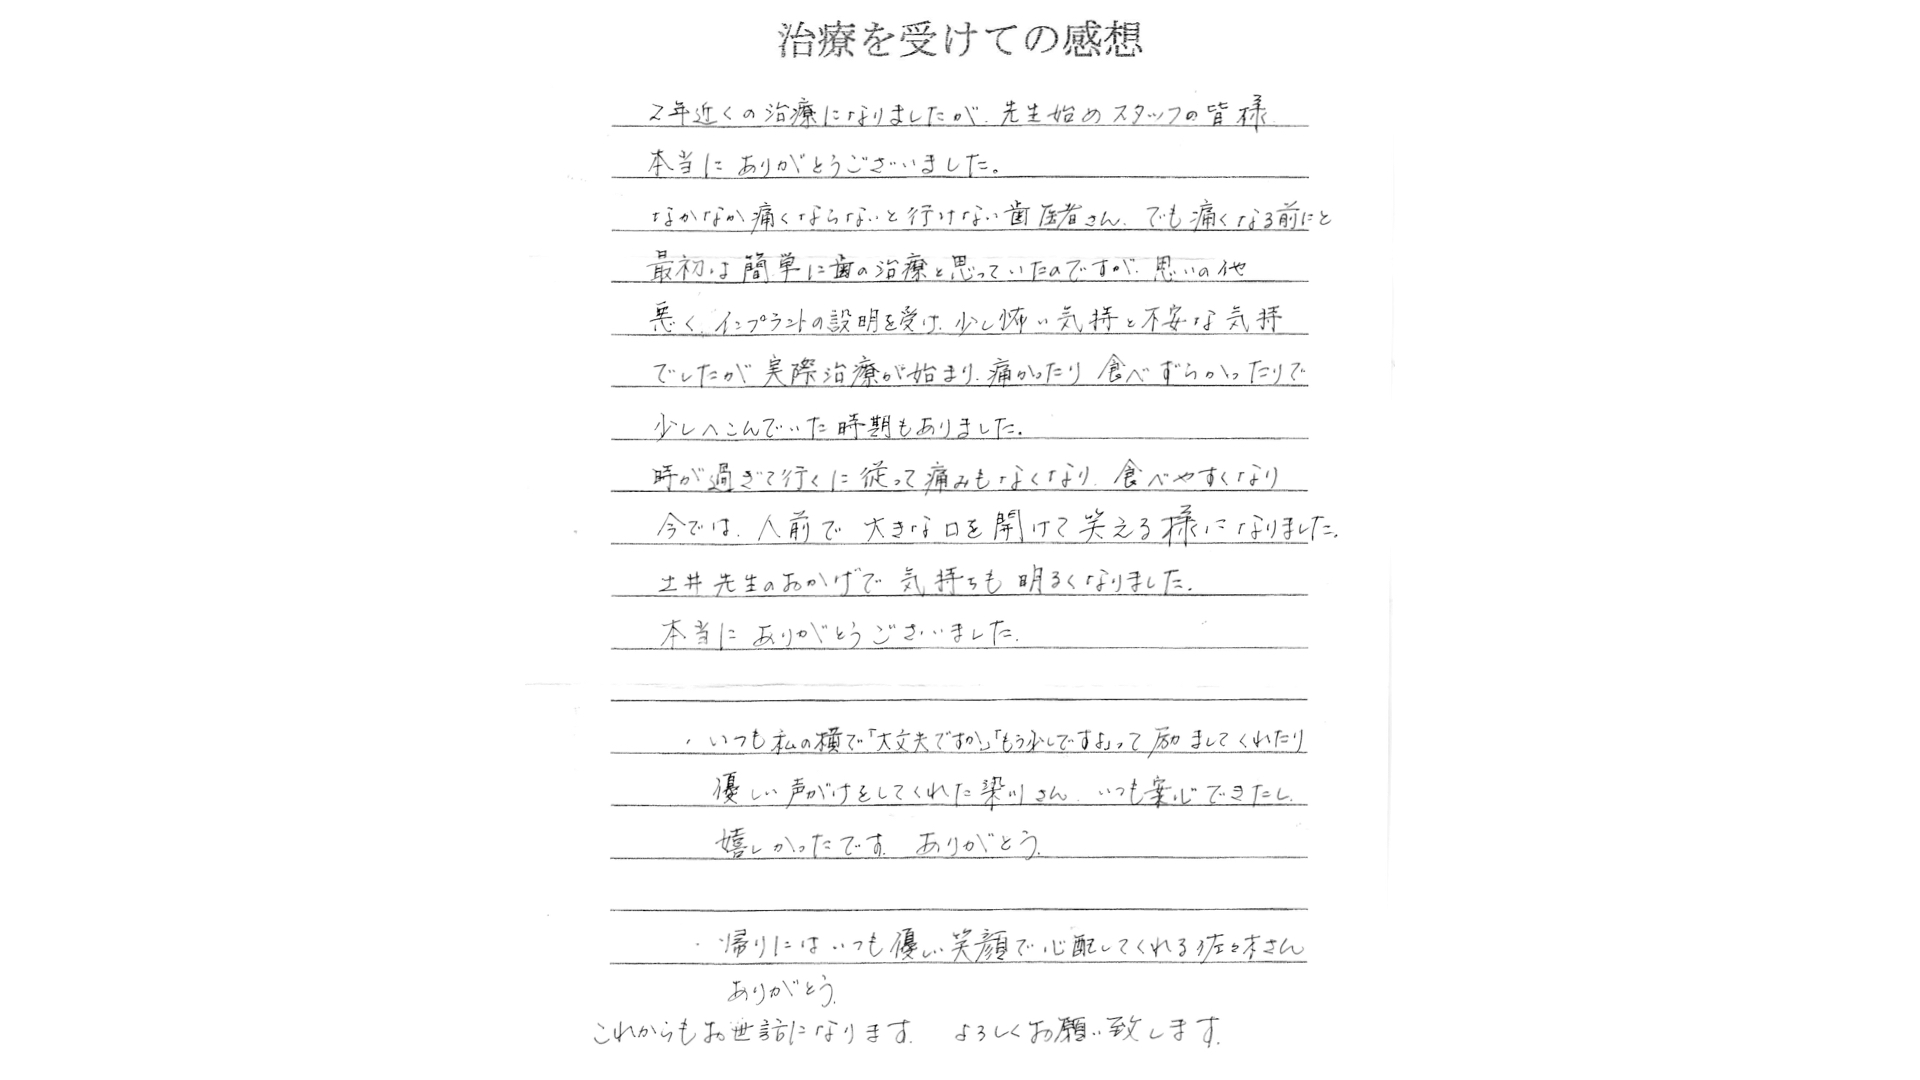 治療を受けての感想
2年近くの治療になりましたが、先生始めスタッフの皆様
本当にありがとうございました。
なかなか痛くならないと行けない歯医者さん、でも痛くなる前にと
最初は簡単に歯の治療と思っていたのですが、思いの他
悪く、インプラントの説明を受け、少し怖い気持と不安な気持
でしたが実際治療が始まり、痛かったり食べずらかったりで
少しへこんでいた時期もありました。
時が過ぎて行くに従って痛みもなくなり、食べやすくなり
今では、人前で大きな口を開けて笑える様になりました。
土井先生のおかげで気持ちも明るくなりました。
本当にありがとうございました。
・いつも私の横で「大丈夫ですか」「もう少しですよ」って励ましてくれたり
優しい声がけをしてくれた染川さん、いつも安心できたし、
嬉しかったです。ありがとう。
・帰りにはいつも優しい笑顔で心配してくれる佐々木さん
ありがとう。
これからもお世話になります。 よろしくお願い致します。